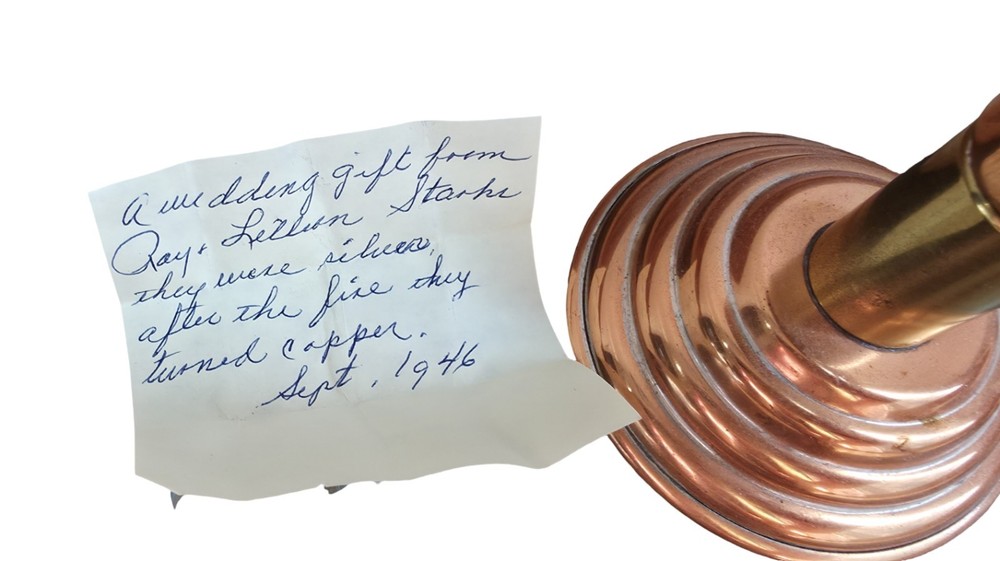 A wedding gift from
Ray + Lillian Starks
they were silver,
after the fire they
turned copper.
Sept. 1946